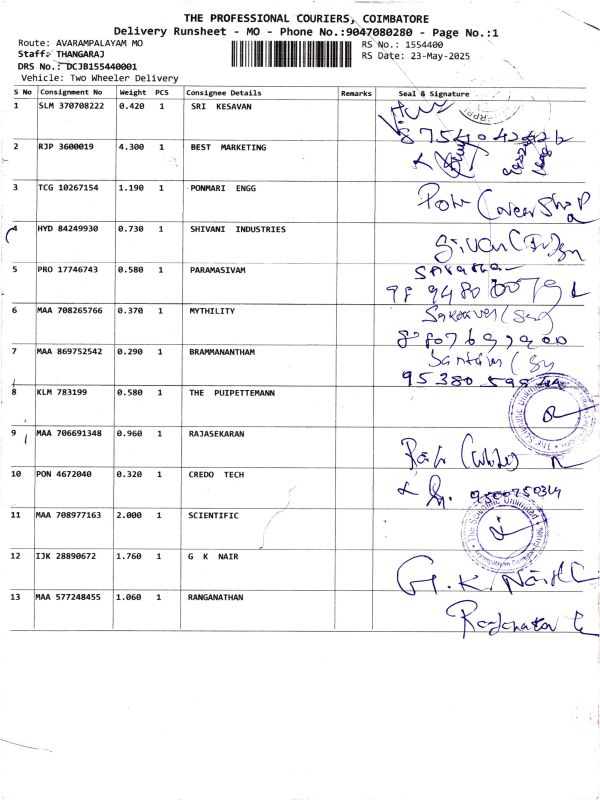 THE PROFESSIONAL COURIERS, COIMBATORE
Delivery Runsheet - MO - Phone No.:9047080280 - Page No.:1
Route: AVARAMPALAYAM MO
RS No.: 1554400
Staff: THANGARAJ
RS Date: 23-May-2025
DRS No.: DCJB155440001
Vehicle: Two Wheeler Delivery
S No Consignment No Weight PCS Consignee Details Remarks Seal & Signature
1 SLM 370708222 0.420 1 SRI KESAVAN
8754042426
2 RJP 3600019 4.300 1 BEST MARKETING
3 TCG 10267154 1.190 1 PONMARI ENGG
4 HYD 84249930 0.730 1 SHIVANI INDUSTRIES
5 PRO 17746743 0.580 1 PARAMASIVAM
6 MAA 708265766 0.370 1 MYTHILITY
7 MAA 869752542 0.290 1 BRAMMANANTHAM
8 KLM 783199 0.580 1 THE PUIPETTEMANN
9 MAA 706691348 0.960 1 RAJASEKARAN
10 PON 4672040 0.320 1 CREDO TECH
11 MAA 708977163 2.000 1 SCIENTIFIC
The Scientific Unlimited
12 IJK 28890672 1.760 1 G K NAIR
G.K. Nair
13 MAA 577248455 1.060 1 RANGANATHAN